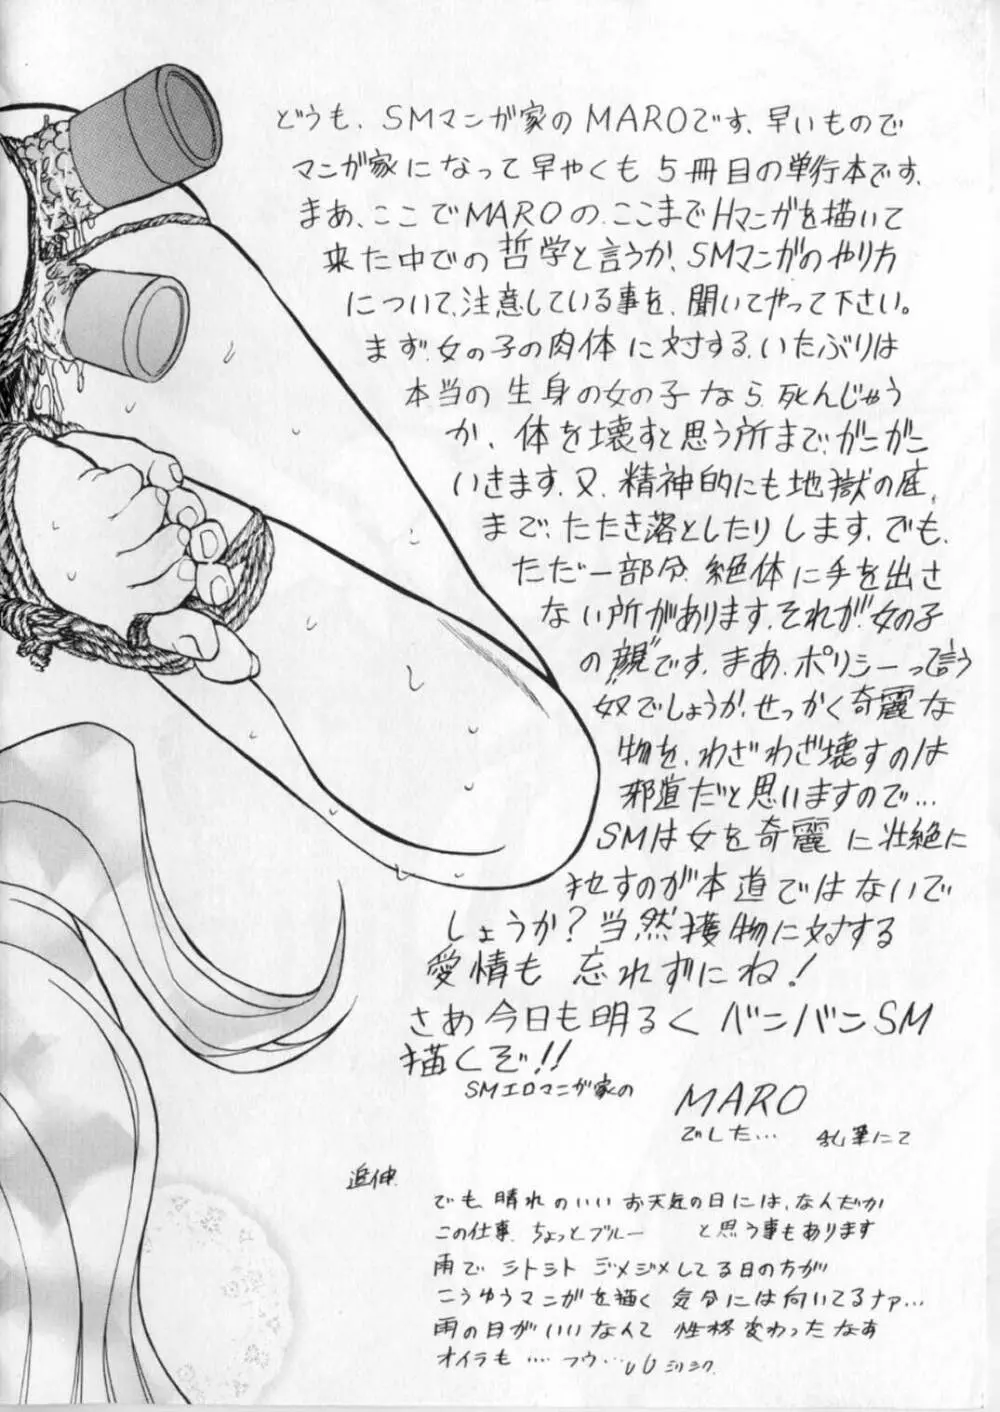 どうも、SMマンガ家のMAROです、早いもので
マンガ家になって早やくも5冊目の単行本です、
まあ、ここでMAROの、ここまでHマンガを描いて
来た中での哲学と言うか、SMマンガのやり方
について、注意している事を、聞いてやって下さい。
まず、女の子の肉体に対する、いたぶりは
本当の生身の女の子なら、死んじゃう
か、体を壊すと思う所まで、ガンガン
いきます、又、精神的にも地獄の底、
まで、たたき落としたりします、でも、
ただ一部分、絶体に手を出さ
ない所があります、それが、女の子
の"顔"です、まあ、ポリシーって言う
奴でしょうか、せっかく奇麗な
物を、わざわざ壊すのは
邪道だと思いますので…
SMは女を奇麗に壮絶に
すのが本道ではないで
しょうか?当然獲物に対する
愛情も忘れずにね!
さあ今日も明るくバンバンSM
描くぞ!!
SMエロマンガ家の
MARO
でした… 乱筆にて
追伸
でも、晴れのいいお天気の日には、なんだか
この仕事、ちょっとブルー と思う事もあります
雨でシトシトジメジメしてる日の方が
こうゆうマンガを描く気分には向いてるナァ…
雨の日がいいなんて性格変わったなあ
オイラも…フウ…シリシク